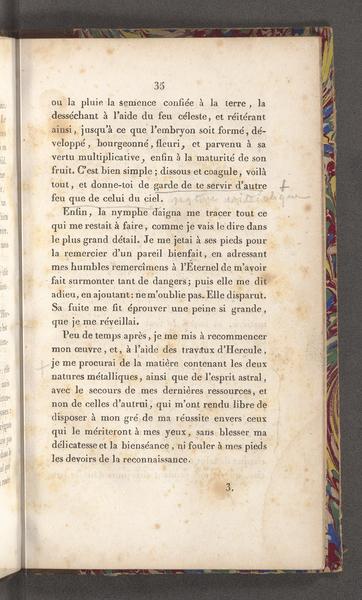 35
ou la pluie la semence confiée à la terre, la
desséchant à l'aide du feu céleste, et réitérant
ainsi, jusqu'à ce que l'embryon soit formé, dé-
veloppé, bourgeonné, fleuri, et parvenu à sa
vertu multiplicative, enfin à la maturité de son
fruit. C'est bien simple; dissous et coagule, voilà
tout, et donne-toi de garde de te servir d'autre
feu que de celui du ciel.
Enfin, la nymphe daigna me tracer tout ce
qui me restait à faire, comme je vais le dire dans
le plus grand détail. Je me jetai à ses pieds pour
la remercier d'un pareil bienfait, en adressant
mes humbles remercîmens à l'Éternel de m'avoir
fait surmonter tant de dangers; puis elle me dit
adieu, en ajoutant: ne m'oublie pas. Elle disparut.
Sa fuite me fit éprouver une peine si grande,
que je me réveillai.
Peu de temps après, je me mis à recommencer
mon œuvre, et, à l'aide des travaux d'Hercule,
je me procurai de la matière contenant les deux
natures métalliques, ainsi que de l'esprit astral,
avec le secours de mes dernières ressources, et
non de celles d'autrui, qui m'ont rendu libre de
disposer à mon gré de ma réussite envers ceux
qui le mériteront à mes yeux, sans blesser ma
délicatesse et la bienséance, ni fouler à mes pieds
les devoirs de la reconnaissance.
3.